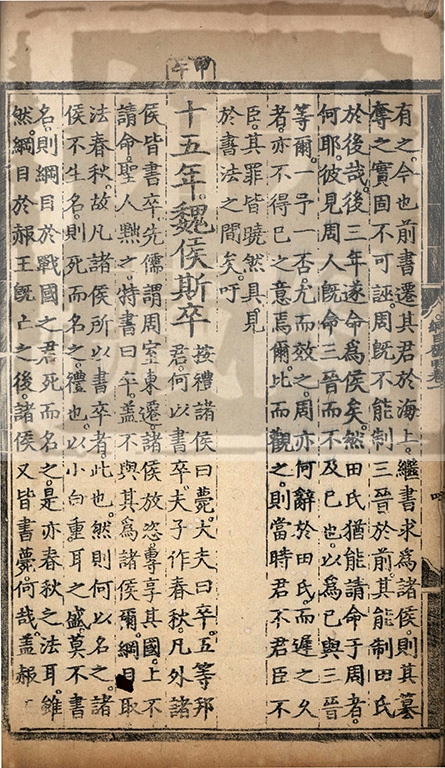 甲午
有之今也前書遷其君於海上繼書求為諸侯則其篡
奪之實固不可誣周旣不能制三晉於前其能制田氏
於後哉後三年遂命為侯矣然田氏猶能請命于周者
何耶彼見周人旣命三晉而不及己也以為己與三晉
等爾一予一否尤而效之周亦何辭於田氏而遲之久
者亦不得已之意焉爾比而觀之則當時君不君臣不
臣其罪皆曉然具見
於書法之間矣吁
十五年魏侯斯卒
按禮諸侯曰薨大夫曰卒五等邦
君何以書卒夫子作春秋凡外諸
侯皆書卒先儒謂周室東遷諸侯放恣尊享其國上不
請命聖人黜之特書曰卒蓋不與其為諸侯爾綱目取
法春秋故凡諸侯所以書卒者此也然則何以名之諸
侯不生名則死而名之禮也以小白重耳之盛莫不書
名則綱目於戰國之君死而名之是亦春秋之法耳雖
然綱目於赧王旣亡之後諸侯又皆書薨何哉蓋赧